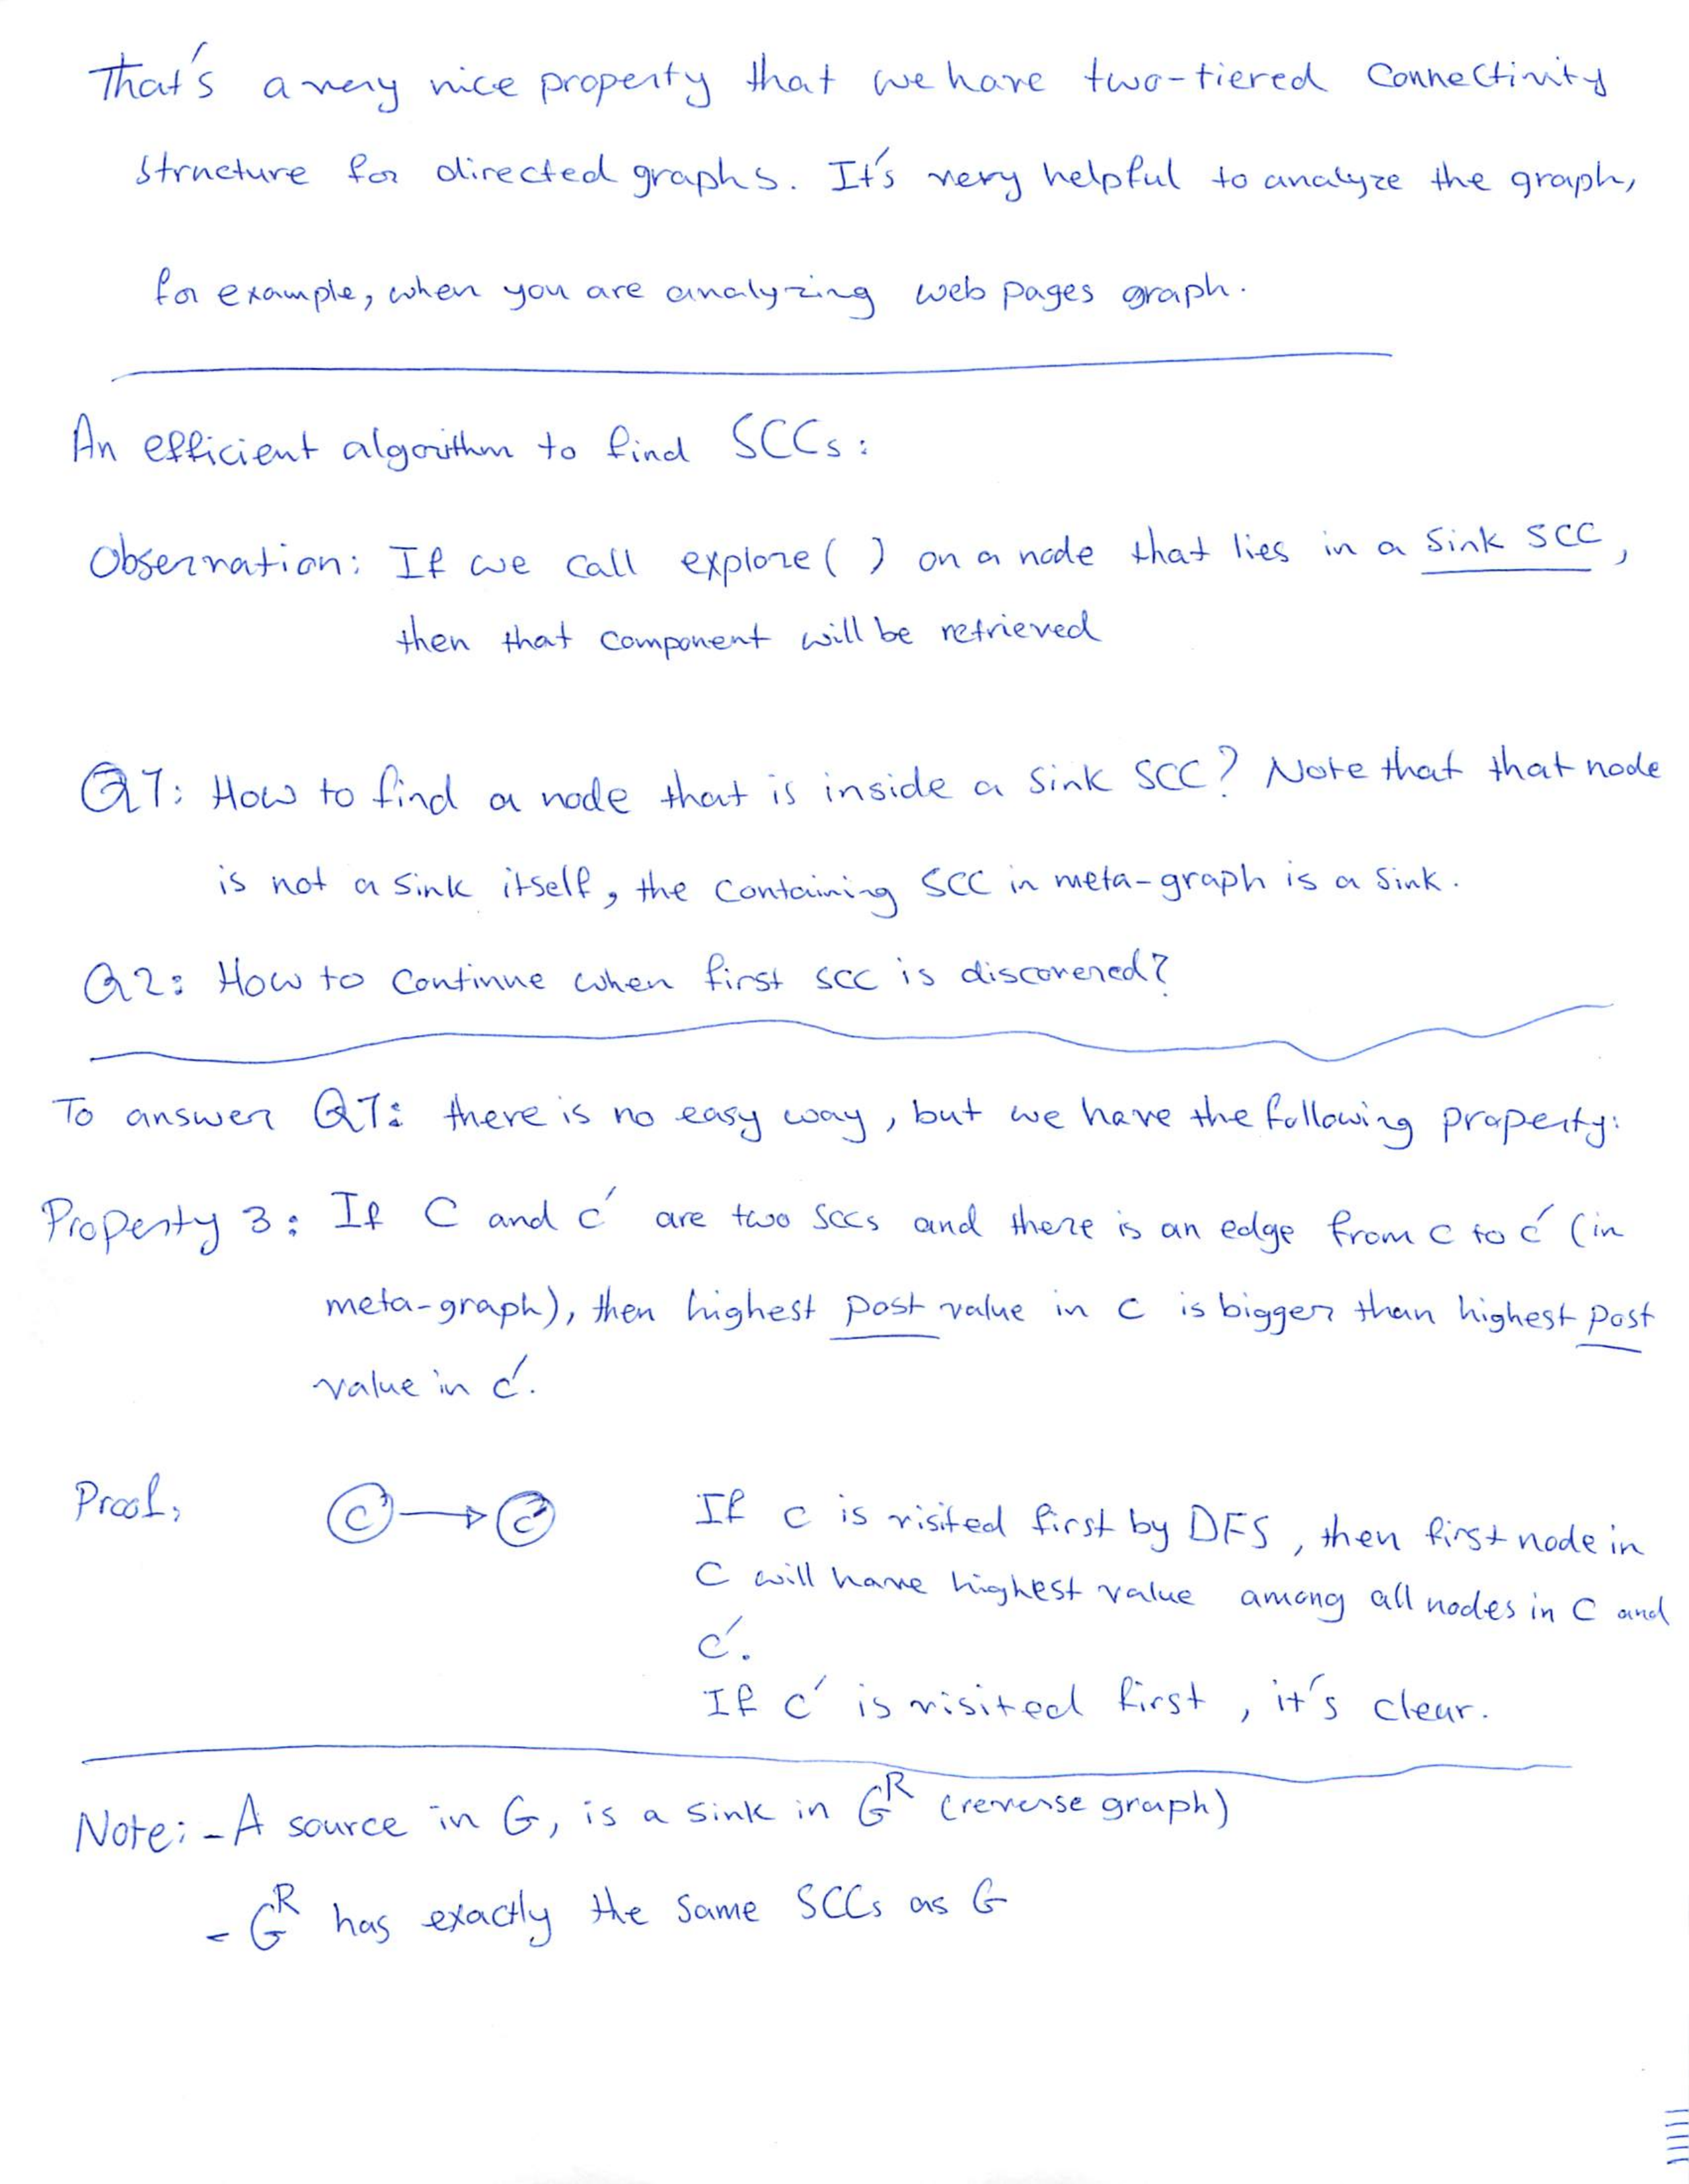 That's a very nice property that we have two-tiered connectivity
structure for directed graphs. It's very helpful to analyze the graph,
for example, when you are analyzing web pages graph.
An efficient algorithm to find SCCs:
Observation: If we call explore( ) on a node that lies in a sink SCC,
then that component will be retrieved
Q1: How to find a node that is inside a sink SCC? Note that that node
is not a sink itself, the containing SCC in meta-graph is a sink.
Q2: How to continue when first SCC is discovered?
To answer Q1: there is no easy way, but we have the following property:
Property 3: If C and C' are two SCCs and there is an edge from C to C' (in
meta-graph), then highest post value in C is bigger than highest post
value in C'.
Proof: C → C' If C is visited first by DFS, then first node in
C will have highest value among all nodes in C and
C'.
If C' is visited first, it's clear.
Note: - A source in G, is a sink in G^R (reverse graph)
- G^R has exactly the same SCCs as G